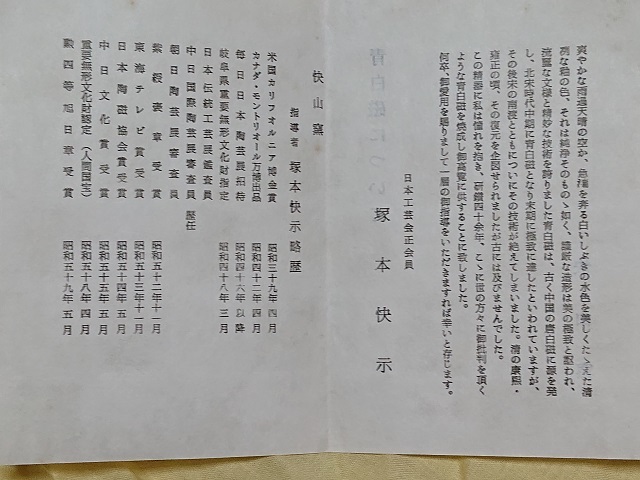 爽やかな雨過天晴の空か、急湍を奔る白いしぶきの水色を美しくたゝえた清
冽な釉の色、それは純浄そのものゝ如く、纎麗な造形は美の極致と謳われ、
流麗な文様と精妙な技術を誇りました青白磁は、古く中国の唐白磁に源を発
し、北宋時代中期に青白磁となり末期に極致に達したといわれていますが、
その後宋の南渡とともについにその技術が絶えてしまいました。清の康熙・
雍正の頃、その復元を企図せられましたが古には及びませんでした。
この精器に私は憧れを抱き、研鑽四十余年、こゝに世の方々に御批判を頂く
ような青白磁を焼成し御高覧に供することに致しました。
何卒、御愛用を賜りまして一層の御指導をいただきますれば幸いと存じます。
日本工芸会正会員
塚本快示
青白磁について
快山窯
指導者 塚本快示略歴
米国カリフォルニア博金賞 昭和三十九年四月
カナダ・モントリオール万博出品 昭和四十二年四月
毎日日本陶芸展招待 昭和四十六年以降
岐阜県重要無形文化財指定 昭和四十八年三月
日本伝統工芸展鑑査員
中日国際陶芸展審査員 歴任
朝日陶芸展審査員
紫綬褒章受賞 昭和五十二年十一月
東海テレビ賞受賞 昭和五十三年十一月
日本陶磁協会賞受賞 昭和五十四年五月
中日文化賞受賞 昭和五十五年五月
重要無形文化財認定(人間国宝) 昭和五十八年四月
勲四等旭日章受賞 昭和五十九年五月